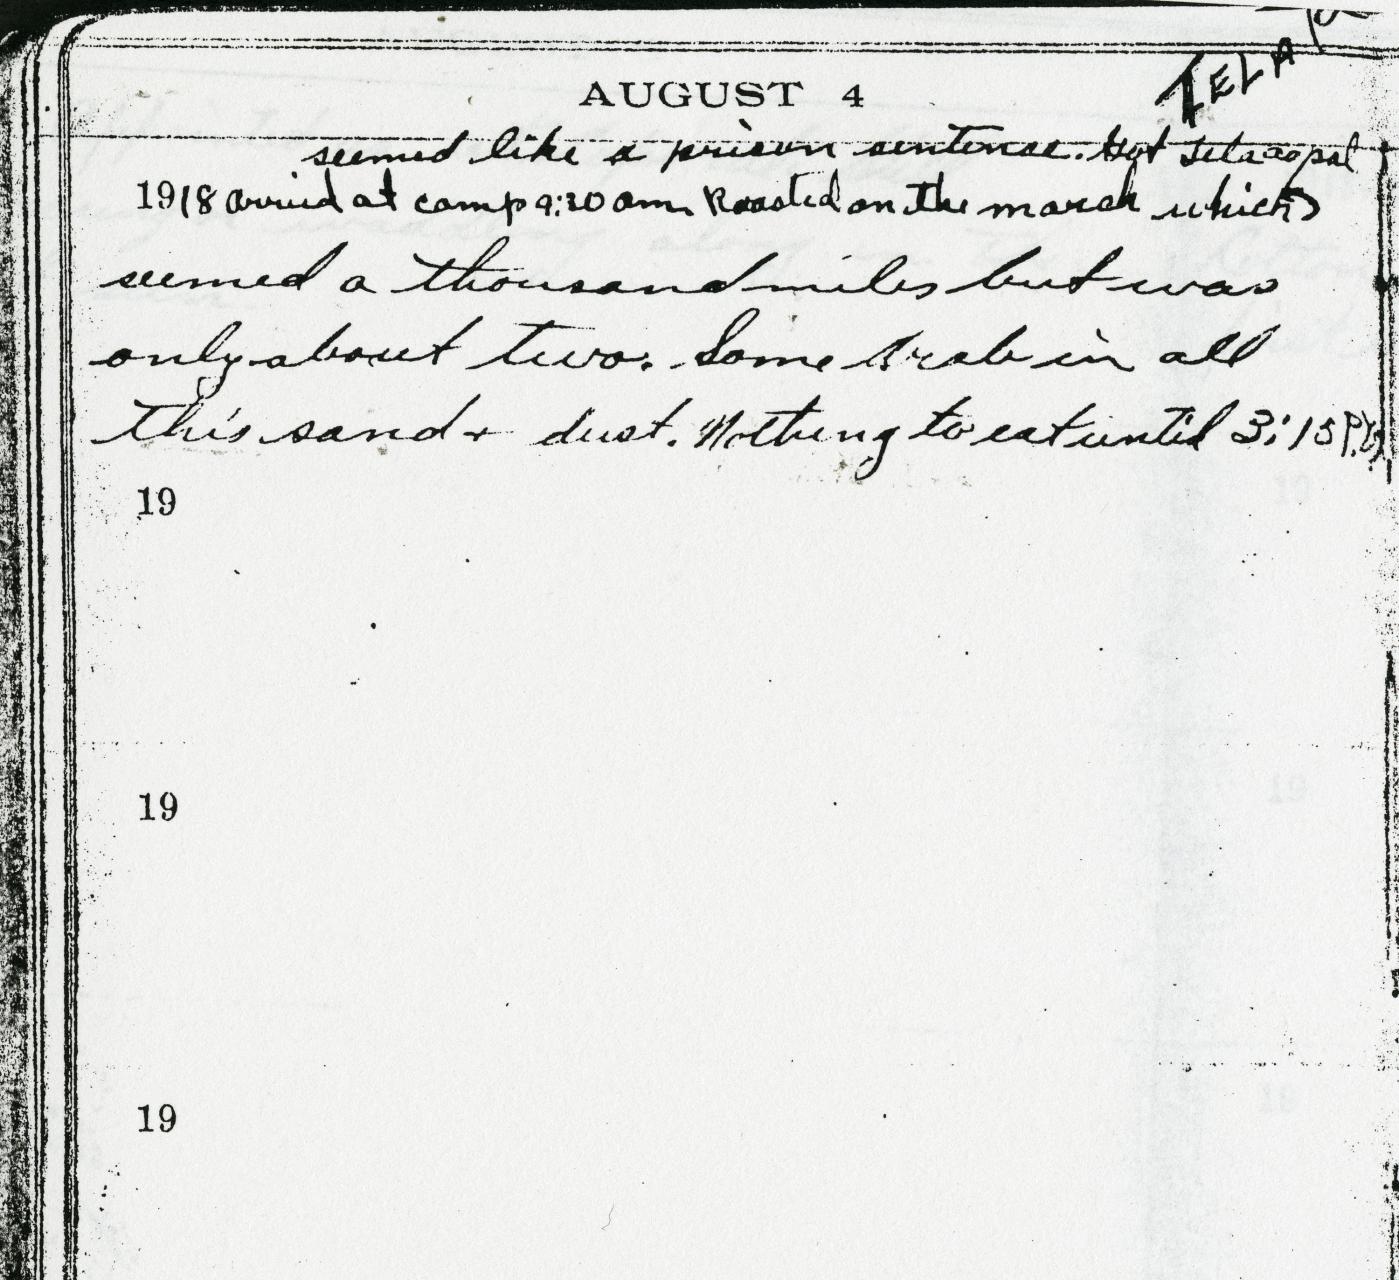 TELA
AUGUST 4
seemed like a prison sentence. Got
1918 Arrived at camp 9:30 am. Roasted on the march which
seemed a thousand miles but was
only about two. Some Arab in all
this sand + dust. Nothing to eat until 3:15 P.M.
19
19
19
19
19
19